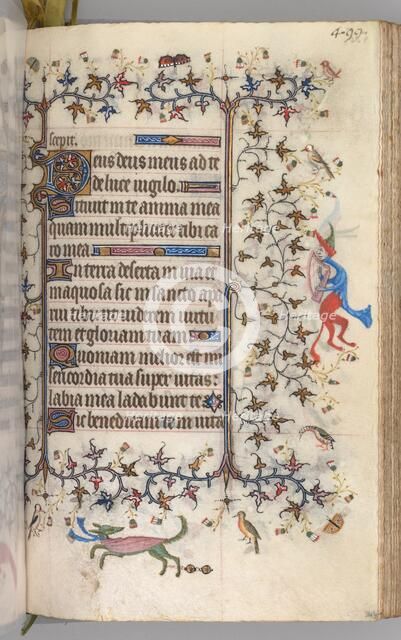 4-99
scepit.
Deus deus meus ad te
de luce vigilo.
Sitivit in te anima mea
quam multipliciter tibi ca
ro mea
In terra deserta in via et
in aquosa sic in sancto apa
rui tibi ut viderem virtu
tem et gloriam tuam
Quoniam melior est mi
sericordia tua super vitas:
labia mea laudabunt te
Sic benedicam te in vita
heritage images
heritage images